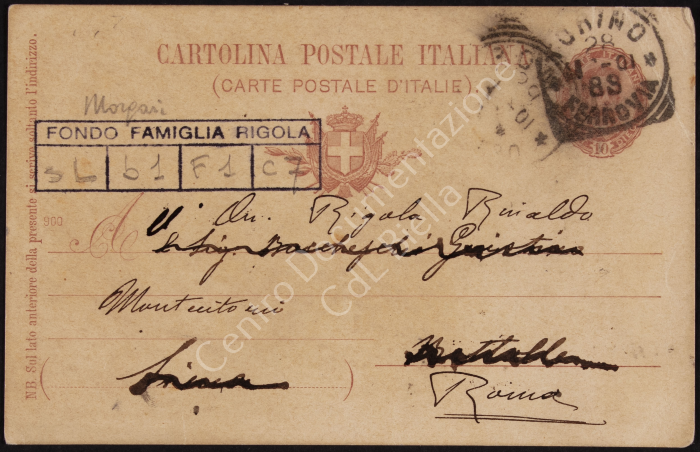 CARTOLINA POSTALE ITALIANA
(CARTE POSTALE D'ITALIE)
TORINO
28
01
89
FERROVIA
Morgari
FONDO FAMIGLIA RIGOLA
SL b1 F1 C7
NB. Sul lato anteriore della presente si scrive soltanto l'indirizzo.
900
A
On. Rigola Rinaldo
Sig.
Montecitorio
Siena
Roma
Centro Documentazione
CdL Biella